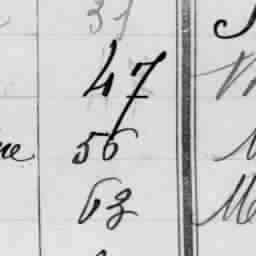 31
47
ne 56
63